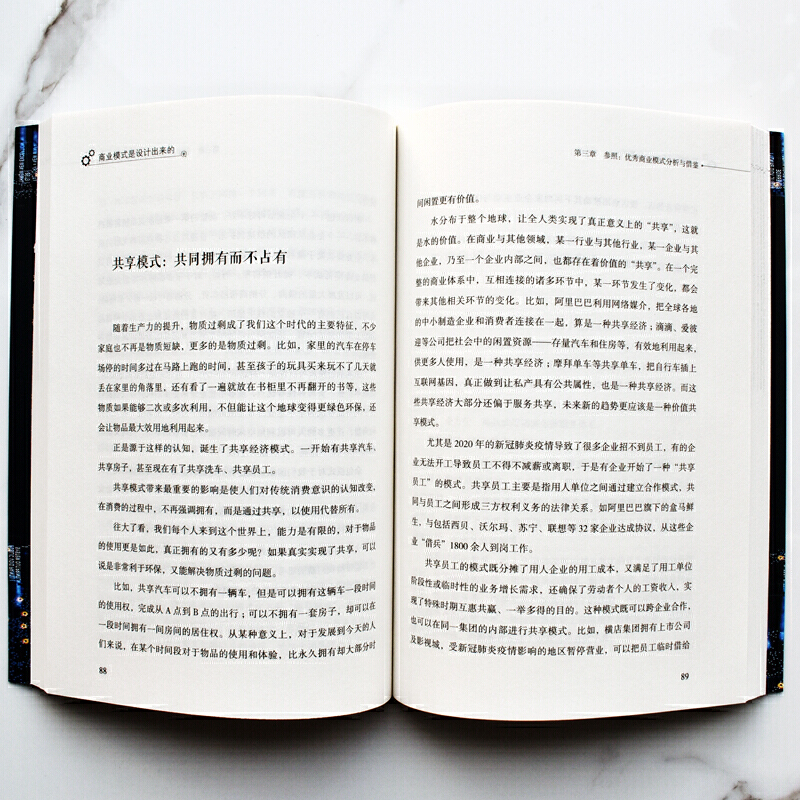 商业模式是设计出来的
共享模式：共同拥有而不占有
随着生产力的提升，物质过剩成了我们这个时代的主要特征，不少
家庭也不再是物质短缺，更多的是物质过剩。比如，家里的汽车在停车
场停的时间多过在马路上跑的时间，甚至孩子的玩具买来玩不了几天就
丢在家里的角落里，还有看了一遍就放在书柜里不再翻开的书等，这些
物质如果能够二次或多次利用，不但能让这个地球变得更绿色环保，还
会让物品最大效用地利用起来。
正是源于这样的认知，诞生了共享经济模式。一开始有共享汽车、
共享房子，甚至现在有了共享洗车、共享员工。
共享模式带来最重要的影响是使人们对传统消费意识的认知改变，
在消费的过程中，不再强调拥有，而是通过共享，以使用代替所有。
往大了看，我们每个人来到这个世界上，能力是有限的，对于物品
的使用更是如此，真正拥有的又有多少呢？如果真实实现了共享，可以
说是非常利于环保，又能解决物质过剩的问题。
比如，共享汽车可以不拥有一辆车，但是可以拥有这辆车一段时间
的使用权，完成从A点到B点的出行；可以不拥有一套房子，却可以在
一段时间拥有一间房间的居住权。从某种意义上，对于发展到今天的人
们来说，在某个时间段对于物品的使用和体验，比永久拥有却大部分时
88
第三章 参照：优秀商业模式分析与借鉴
间闲置更有价值。
水分布于整个地球，让全人类实现了真正意义上的“共享”，这就
是水的价值。在商业与其他领域，某一行业与其他行业，某一企业与其
他企业，乃至一个企业内部之间，也都存在着价值的“共享”。在一个完
整的商业体系中，互相连接的诸多环节中，某一环节发生了变化，都会
带来其他相关环节的变化。比如，阿里巴巴利用网络媒介，把全球各地
的中小制造企业和消费者连接在一起，算是一种共享经济；滴滴、爱彼
迎等公司把社会中的闲置资源——存量汽车和住房等，有效地利用起来，
供更多人使用，是一种共享经济；摩拜单车等共享单车，把自行车插上
互联网基因，真正做到让私产具有公共属性，也是一种共享经济。而这
些共享经济大部分还偏于服务共享，未来新的趋势更应该是一种价值共
享模式。
尤其是2020年的新冠肺炎疫情导致了很多企业招不到员工，有的企
业无法开工导致员工不得不减薪或离职，于是有企业开始了一种“共享
员工”的模式。共享员工主要是指用人单位之间通过建立合作模式，共
同与员工之间形成三方权利义务的法律关系。如阿里巴巴旗下的盒马鲜
生，与包括西贝、沃尔玛、苏宁、联想等32家企业达成协议，从这些企
业“借兵”1800余人到岗工作。
共享员工的模式既分摊了用人企业的用工成本，又满足了用工单位
阶段性或临时性的业务增长需求，还确保了劳动者个人的工资收入，实
现了特殊时期互惠共赢、一举多得的目的。这种模式既可以跨企业合作，
也可以在同一集团的内部进行共享模式。比如，横店集团拥有上市公司
及影视城，受新冠肺炎疫情影响的地区暂停营业，可以把员工临时借给
89